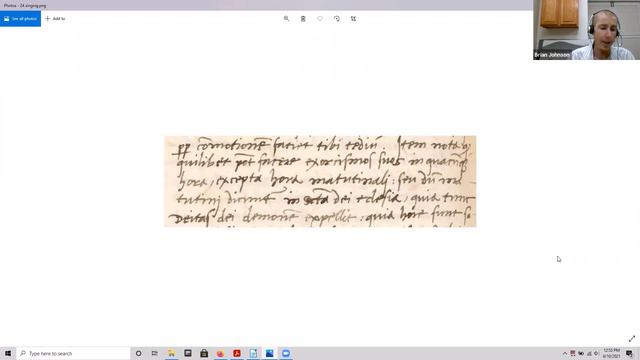 Photos - 24 singing.png
See all photos
Add to
Brian Johnson
comotionē faciet tibi tediū. Item nota q
quilibet pōt facere exorcismos suos in quacūq
hora, excepta hora matutinali: seu dū ma
tutini dicunt in sctā dei eclesia, quia tunc
Deitas dei demonē expellit: quia hore sunt sa
Type here to search
12:53 PM
6/10/2021